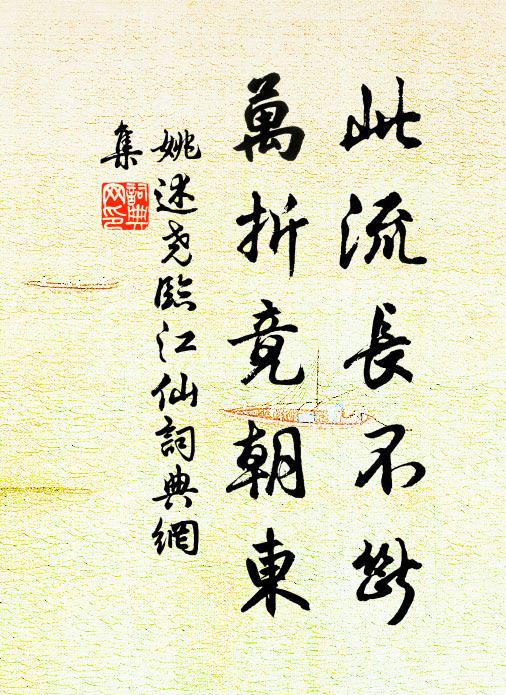 此流長不斷
萬折竟朝東
姚述尧臨江仙詞典網
集
詞典网印